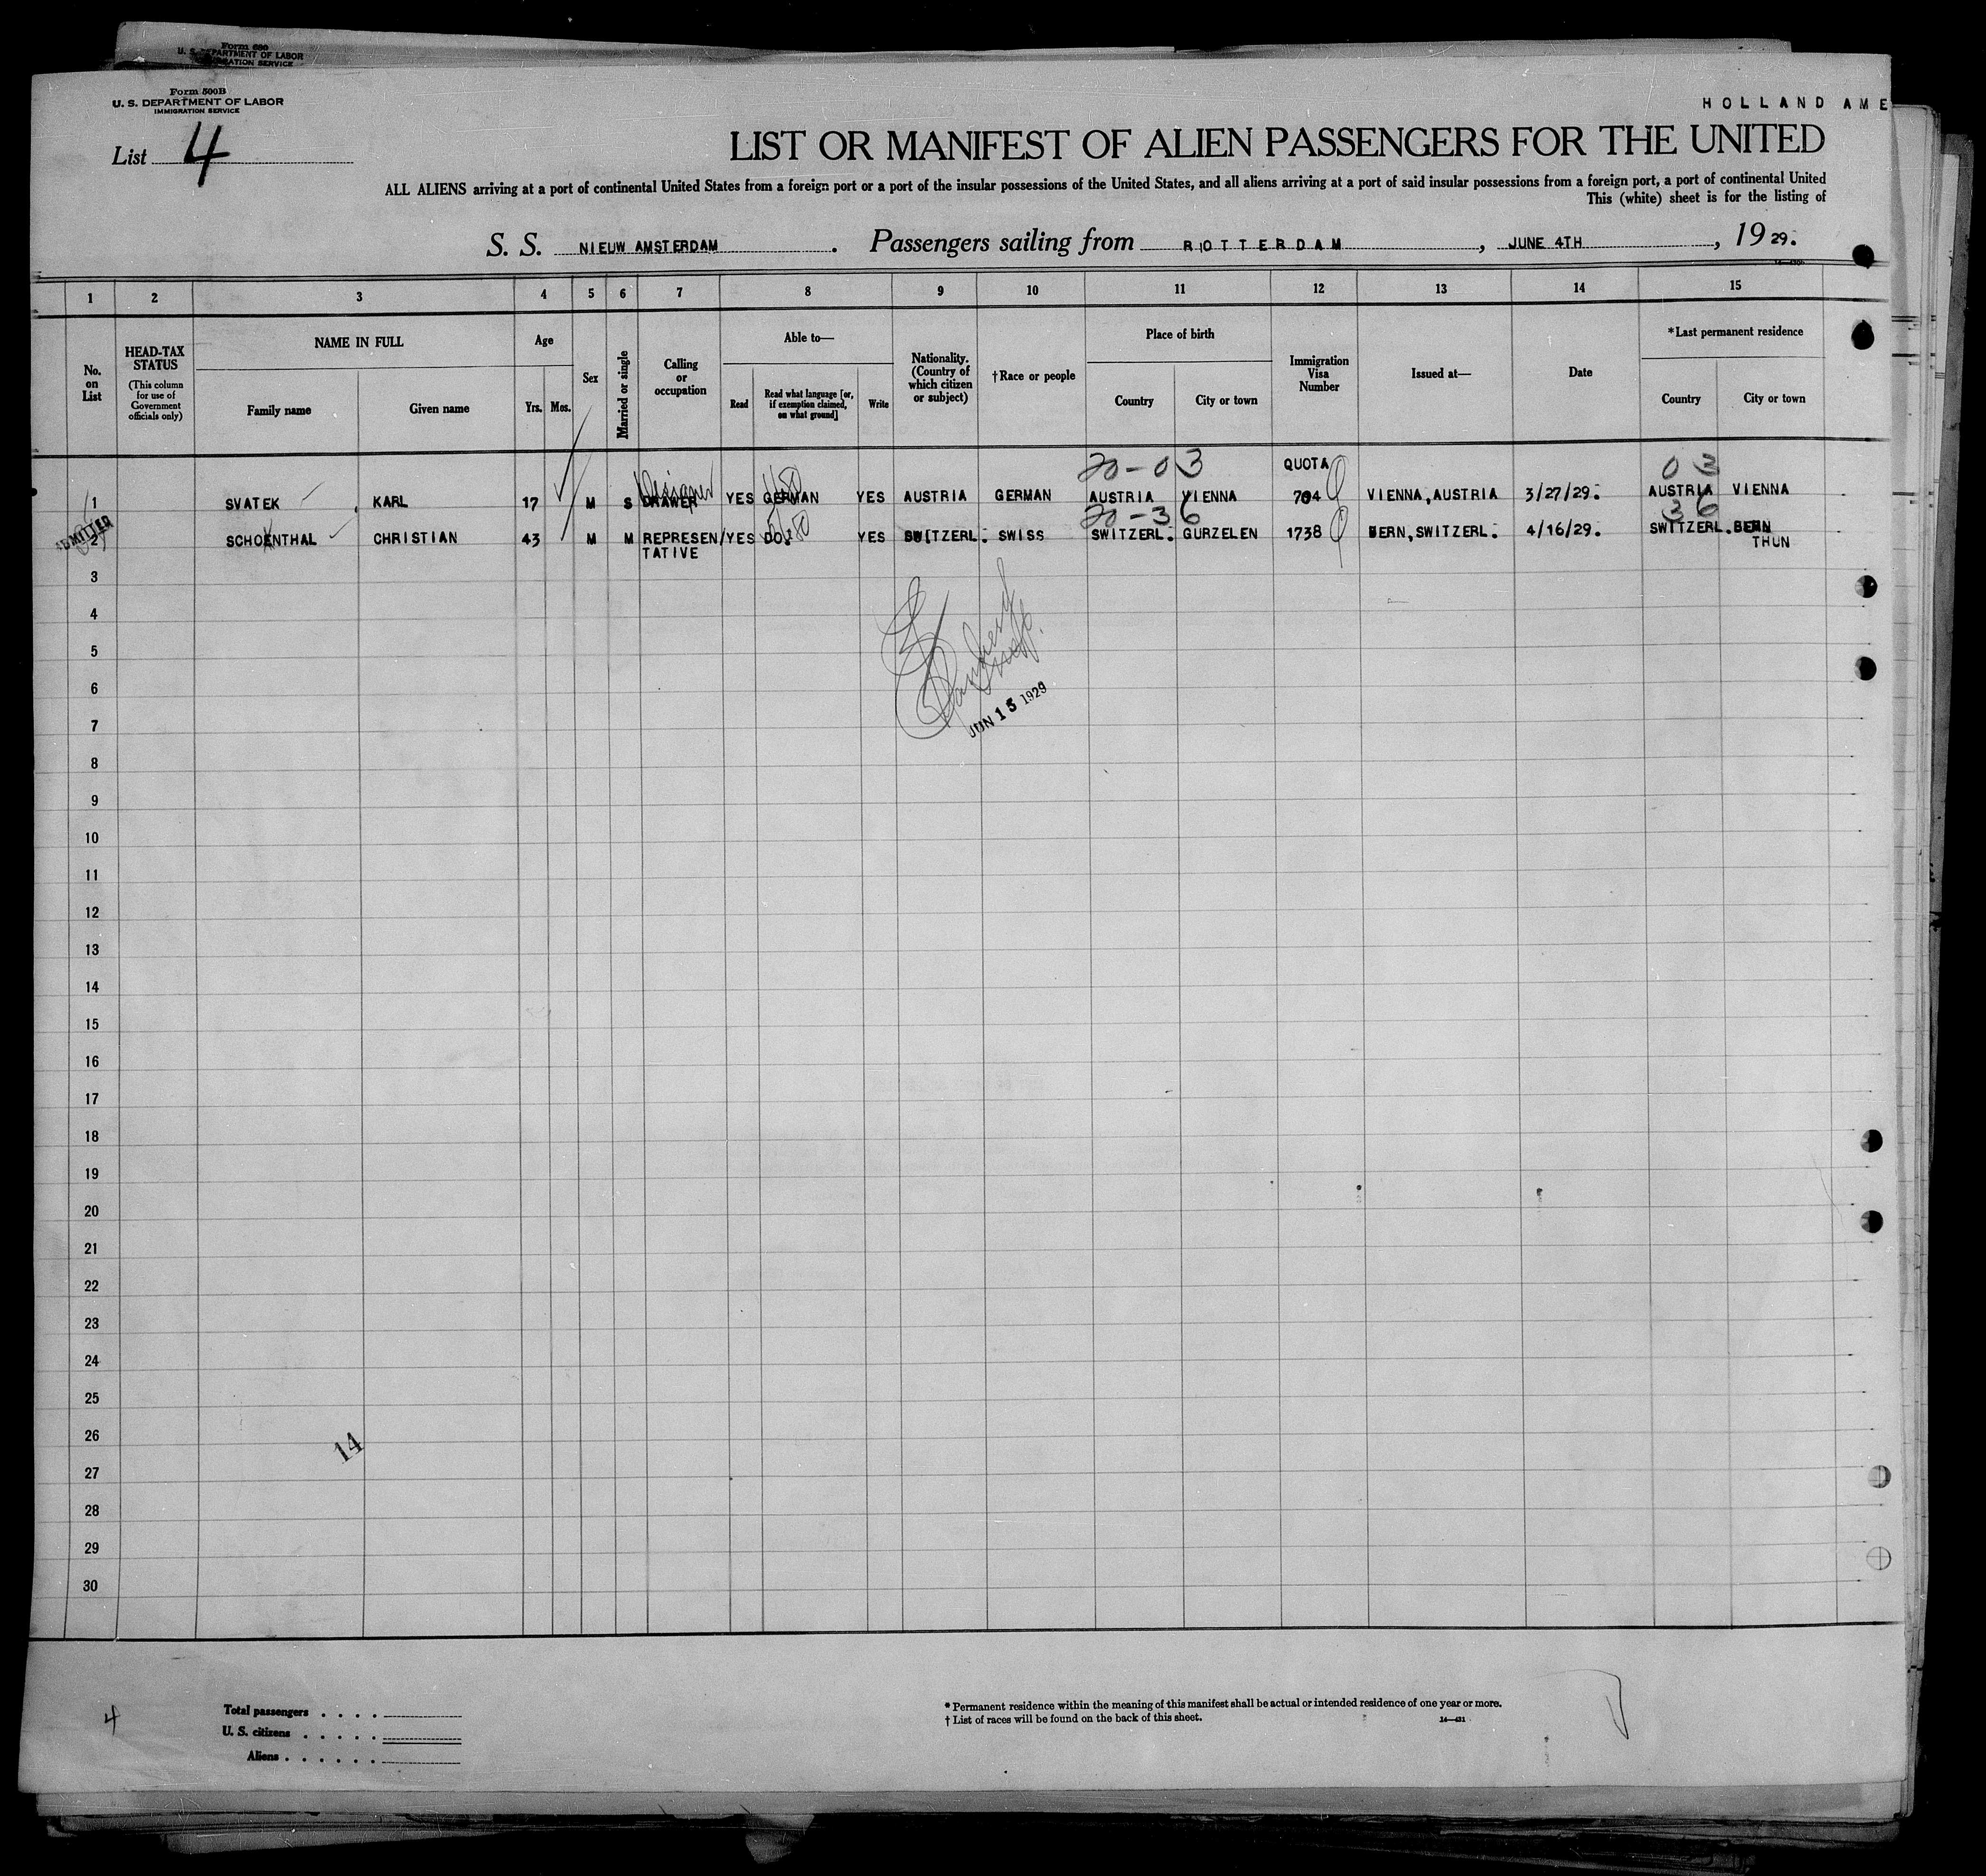 Form 680
U. S. DEPARTMENT OF LABOR
IMMIGRATION SERVICE
Form 500B
U. S. DEPARTMENT OF LABOR
IMMIGRATION SERVICE
HOLLAND AME
List 4
LIST OR MANIFEST OF ALIEN PASSENGERS FOR THE UNITED
ALL ALIENS arriving at a port of continental United States from a foreign port or a port of the insular possessions of the United States, and all aliens arriving at a port of said insular possessions from a foreign port, a port of continental United
This (white) sheet is for the listing of
S. S. NIEUW AMSTERDAM . Passengers sailing from ROTTERDAM , JUNE 4TH , 19 29.
1 2 3 4 5 6 7 8 9 10 11 12 13 14 15
No. on List
HEAD-TAX STATUS (This column for use of Government officials only)
NAME IN FULL
Family name Given name
Age
Yrs. Mos.
Sex
Married or single
Calling or occupation
Able to—
Read Read what language [or, if exemption claimed, on what ground] Write
Nationality. (Country of which citizen or subject)
†Race or people
Place of birth
Country City or town
Immigration Visa Number
Issued at—
Date
*Last permanent residence
Country City or town
20-03 QUOTA 03
Designer
1 SVATEK , KARL 17 M S DRAWER YES GERMAN YES AUSTRIA GERMAN AUSTRIA VIENNA 704 VIENNA, AUSTRIA 3/27/29. AUSTRIA VIENNA
20-36 36
ADMITTED
2 SCHOENTHAL CHRISTIAN 43 M M REPRESEN/ YES DO. YES SWITZERL. SWISS SWITZERL. GURZELEN 1738 BERN, SWITZERL. 4/16/29. SWITZERL. BERN
TATIVE THUN
3
4
5
6
JUN 15 1929
7
8
9
10
11
12
13
14
15
16
17
18
19
20
21
22
23
24
25
26
14
27
28
29
30
4
Total passengers . . . .
U. S. citizens . . . . .
Aliens . . . . . .
* Permanent residence within the meaning of this manifest shall be actual or intended residence of one year or more.
† List of races will be found on the back of this sheet.